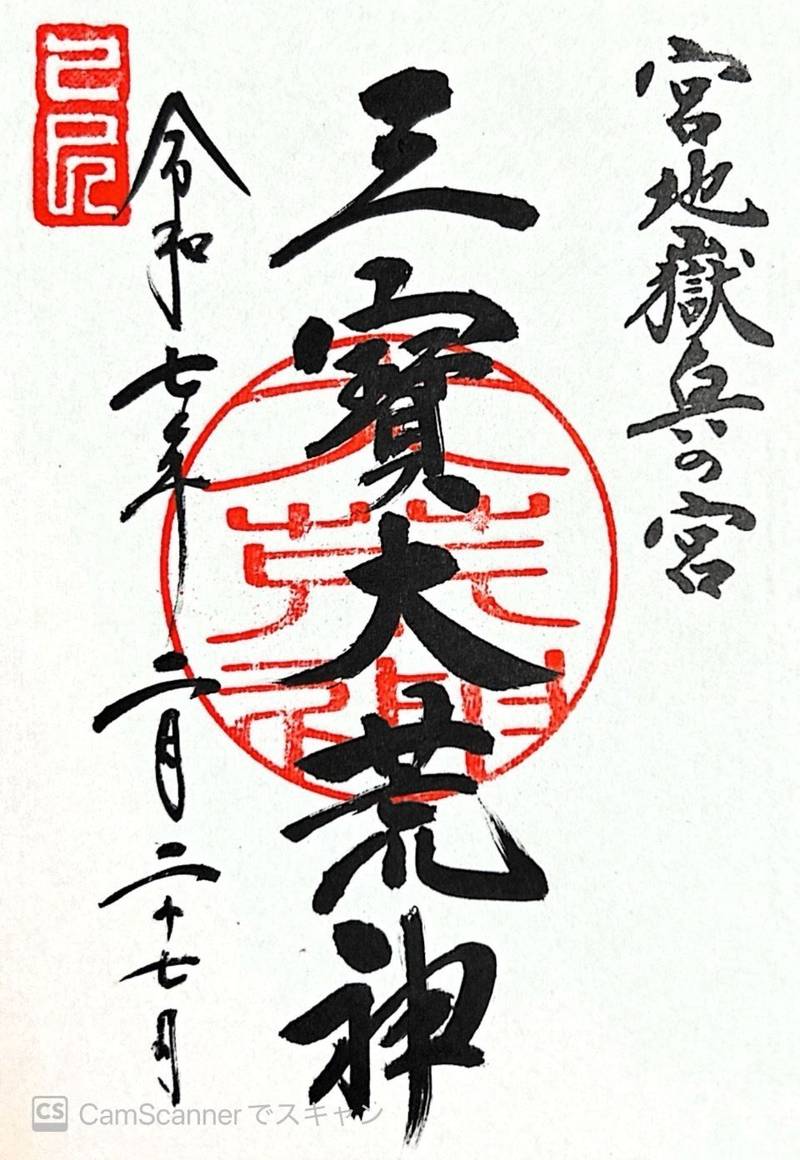 宮地嶽兵の宮
三寳大荒神
大荒神
令和七年二月二十七日
己巳
CamScanner でスキャン